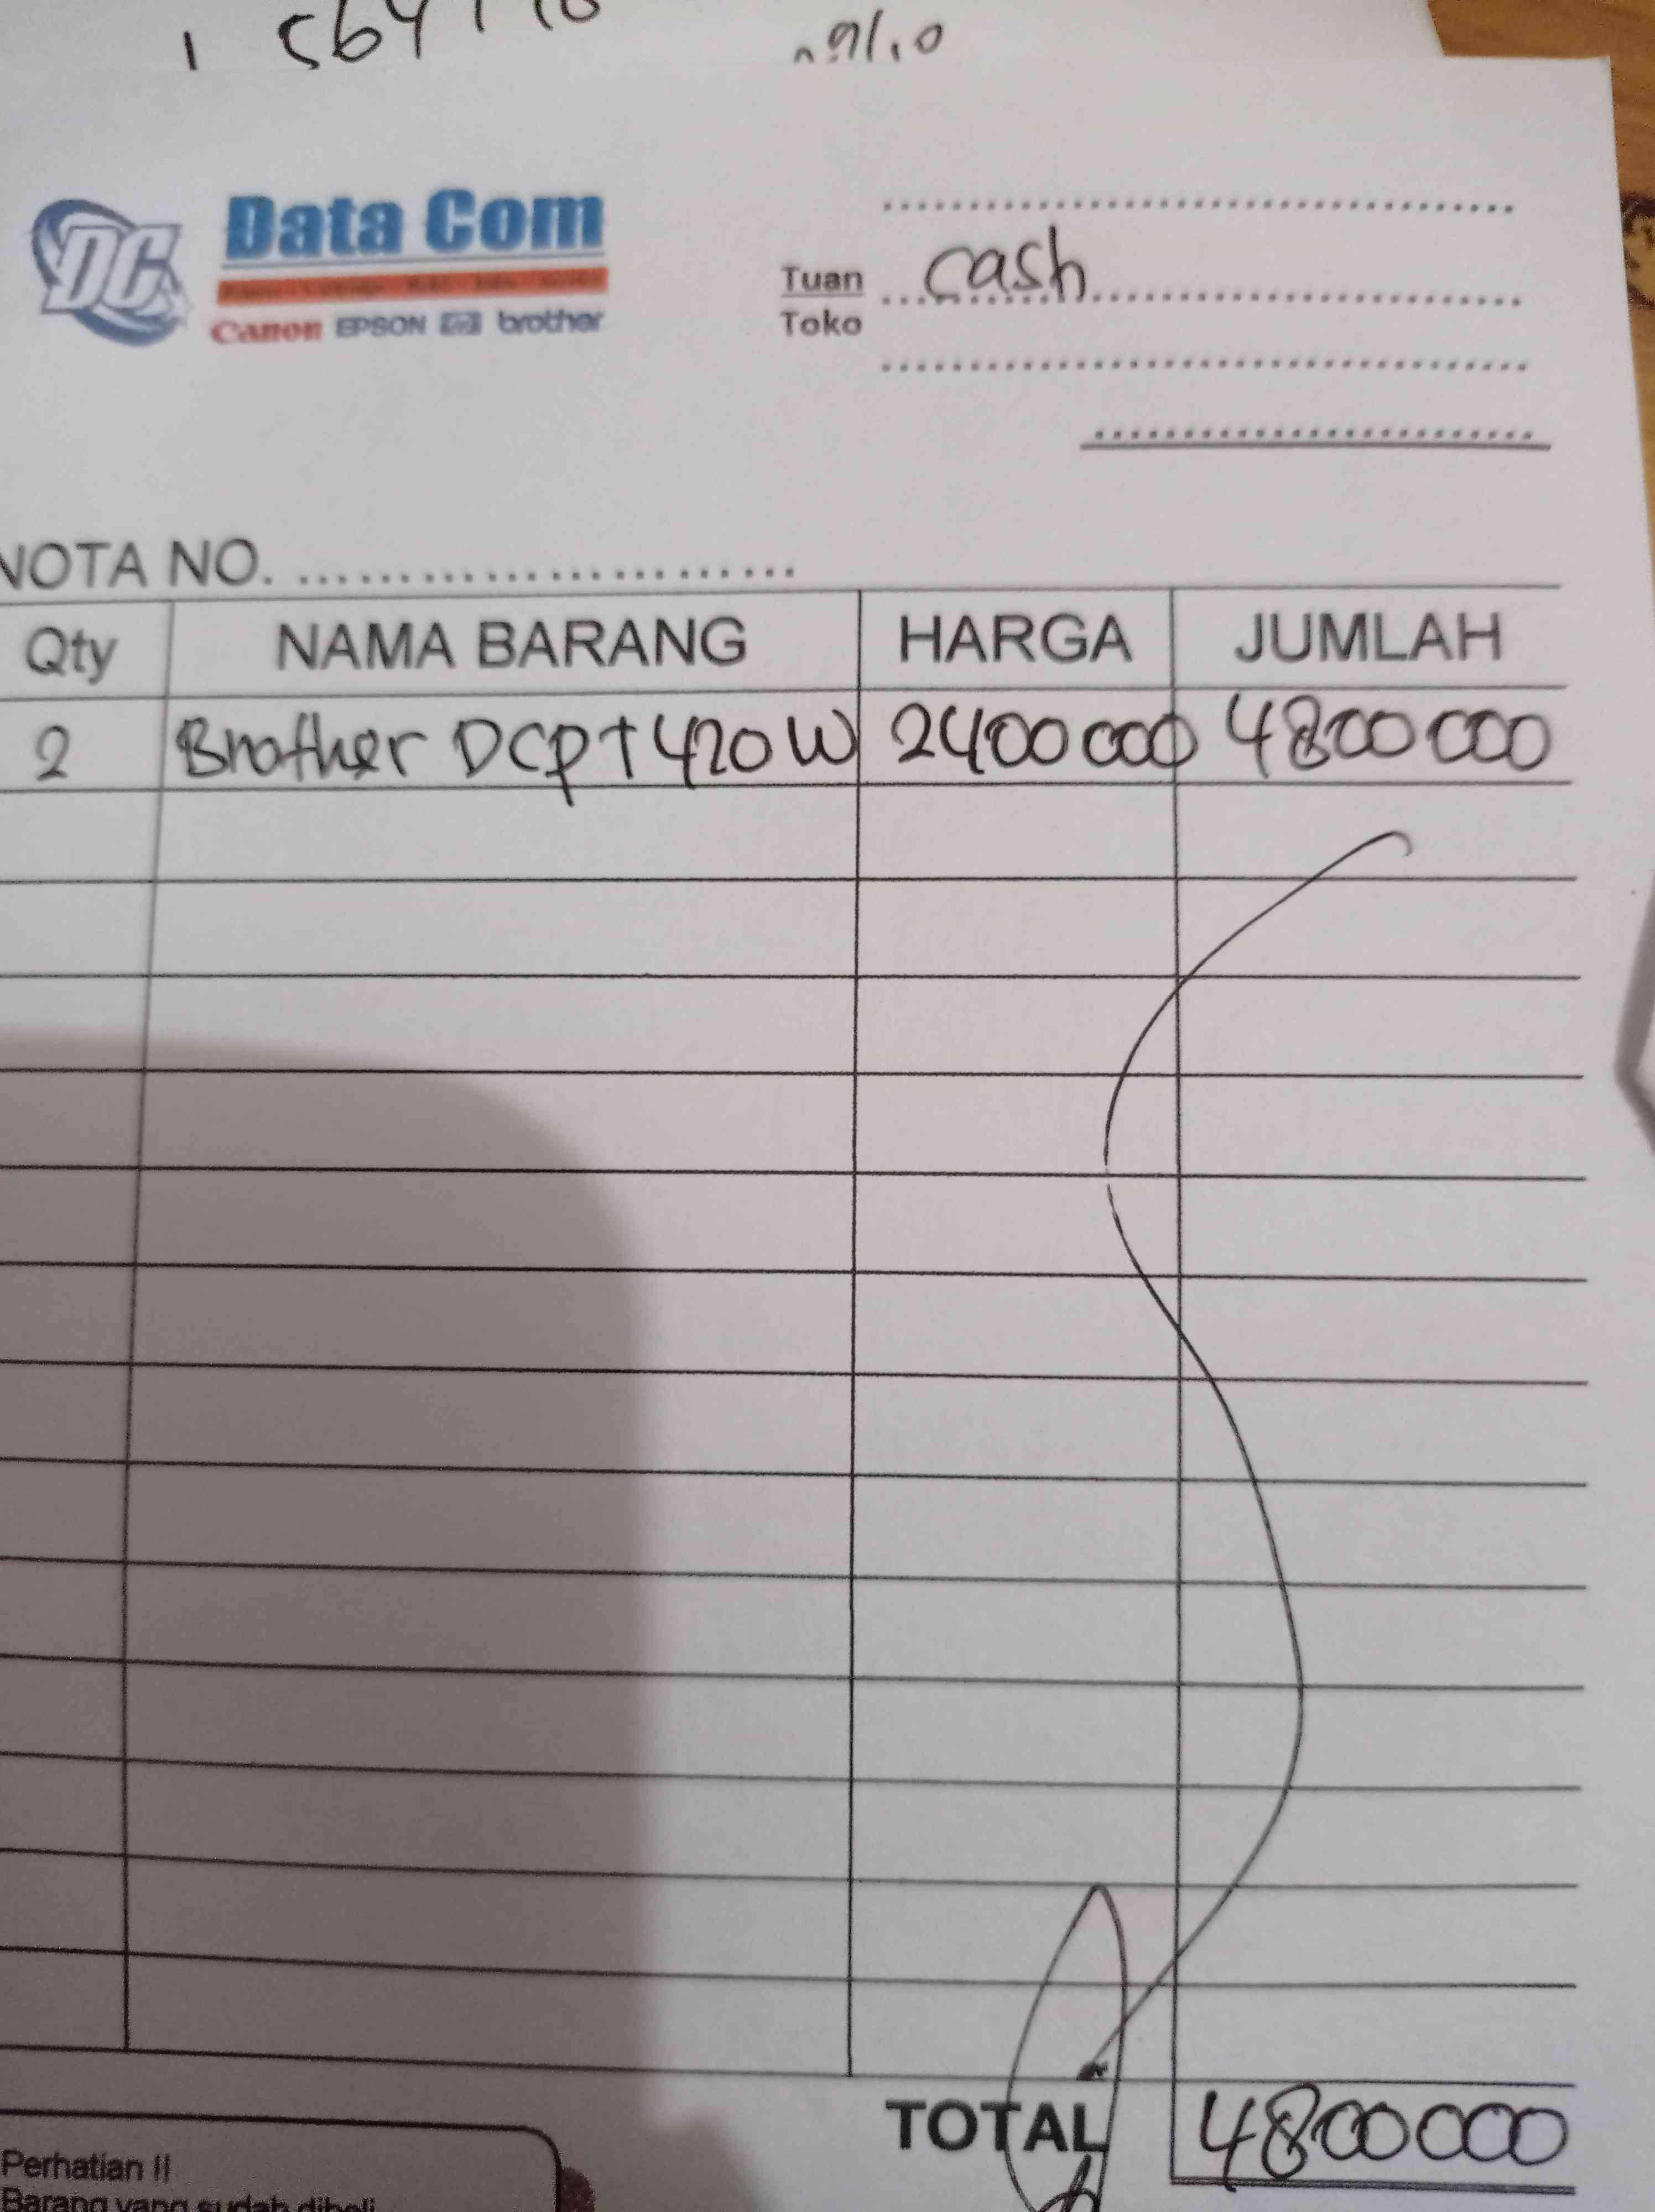 Data Com
Canon EPSON hp brother
Tuan cash
Toko
NOTA NO.
Qty NAMA BARANG HARGA JUMLAH
2 Brother DCP T 420 W 2400 000 4800 000
TOTAL 4800 000
Perhatian !!
Barang yang sudah dibeli